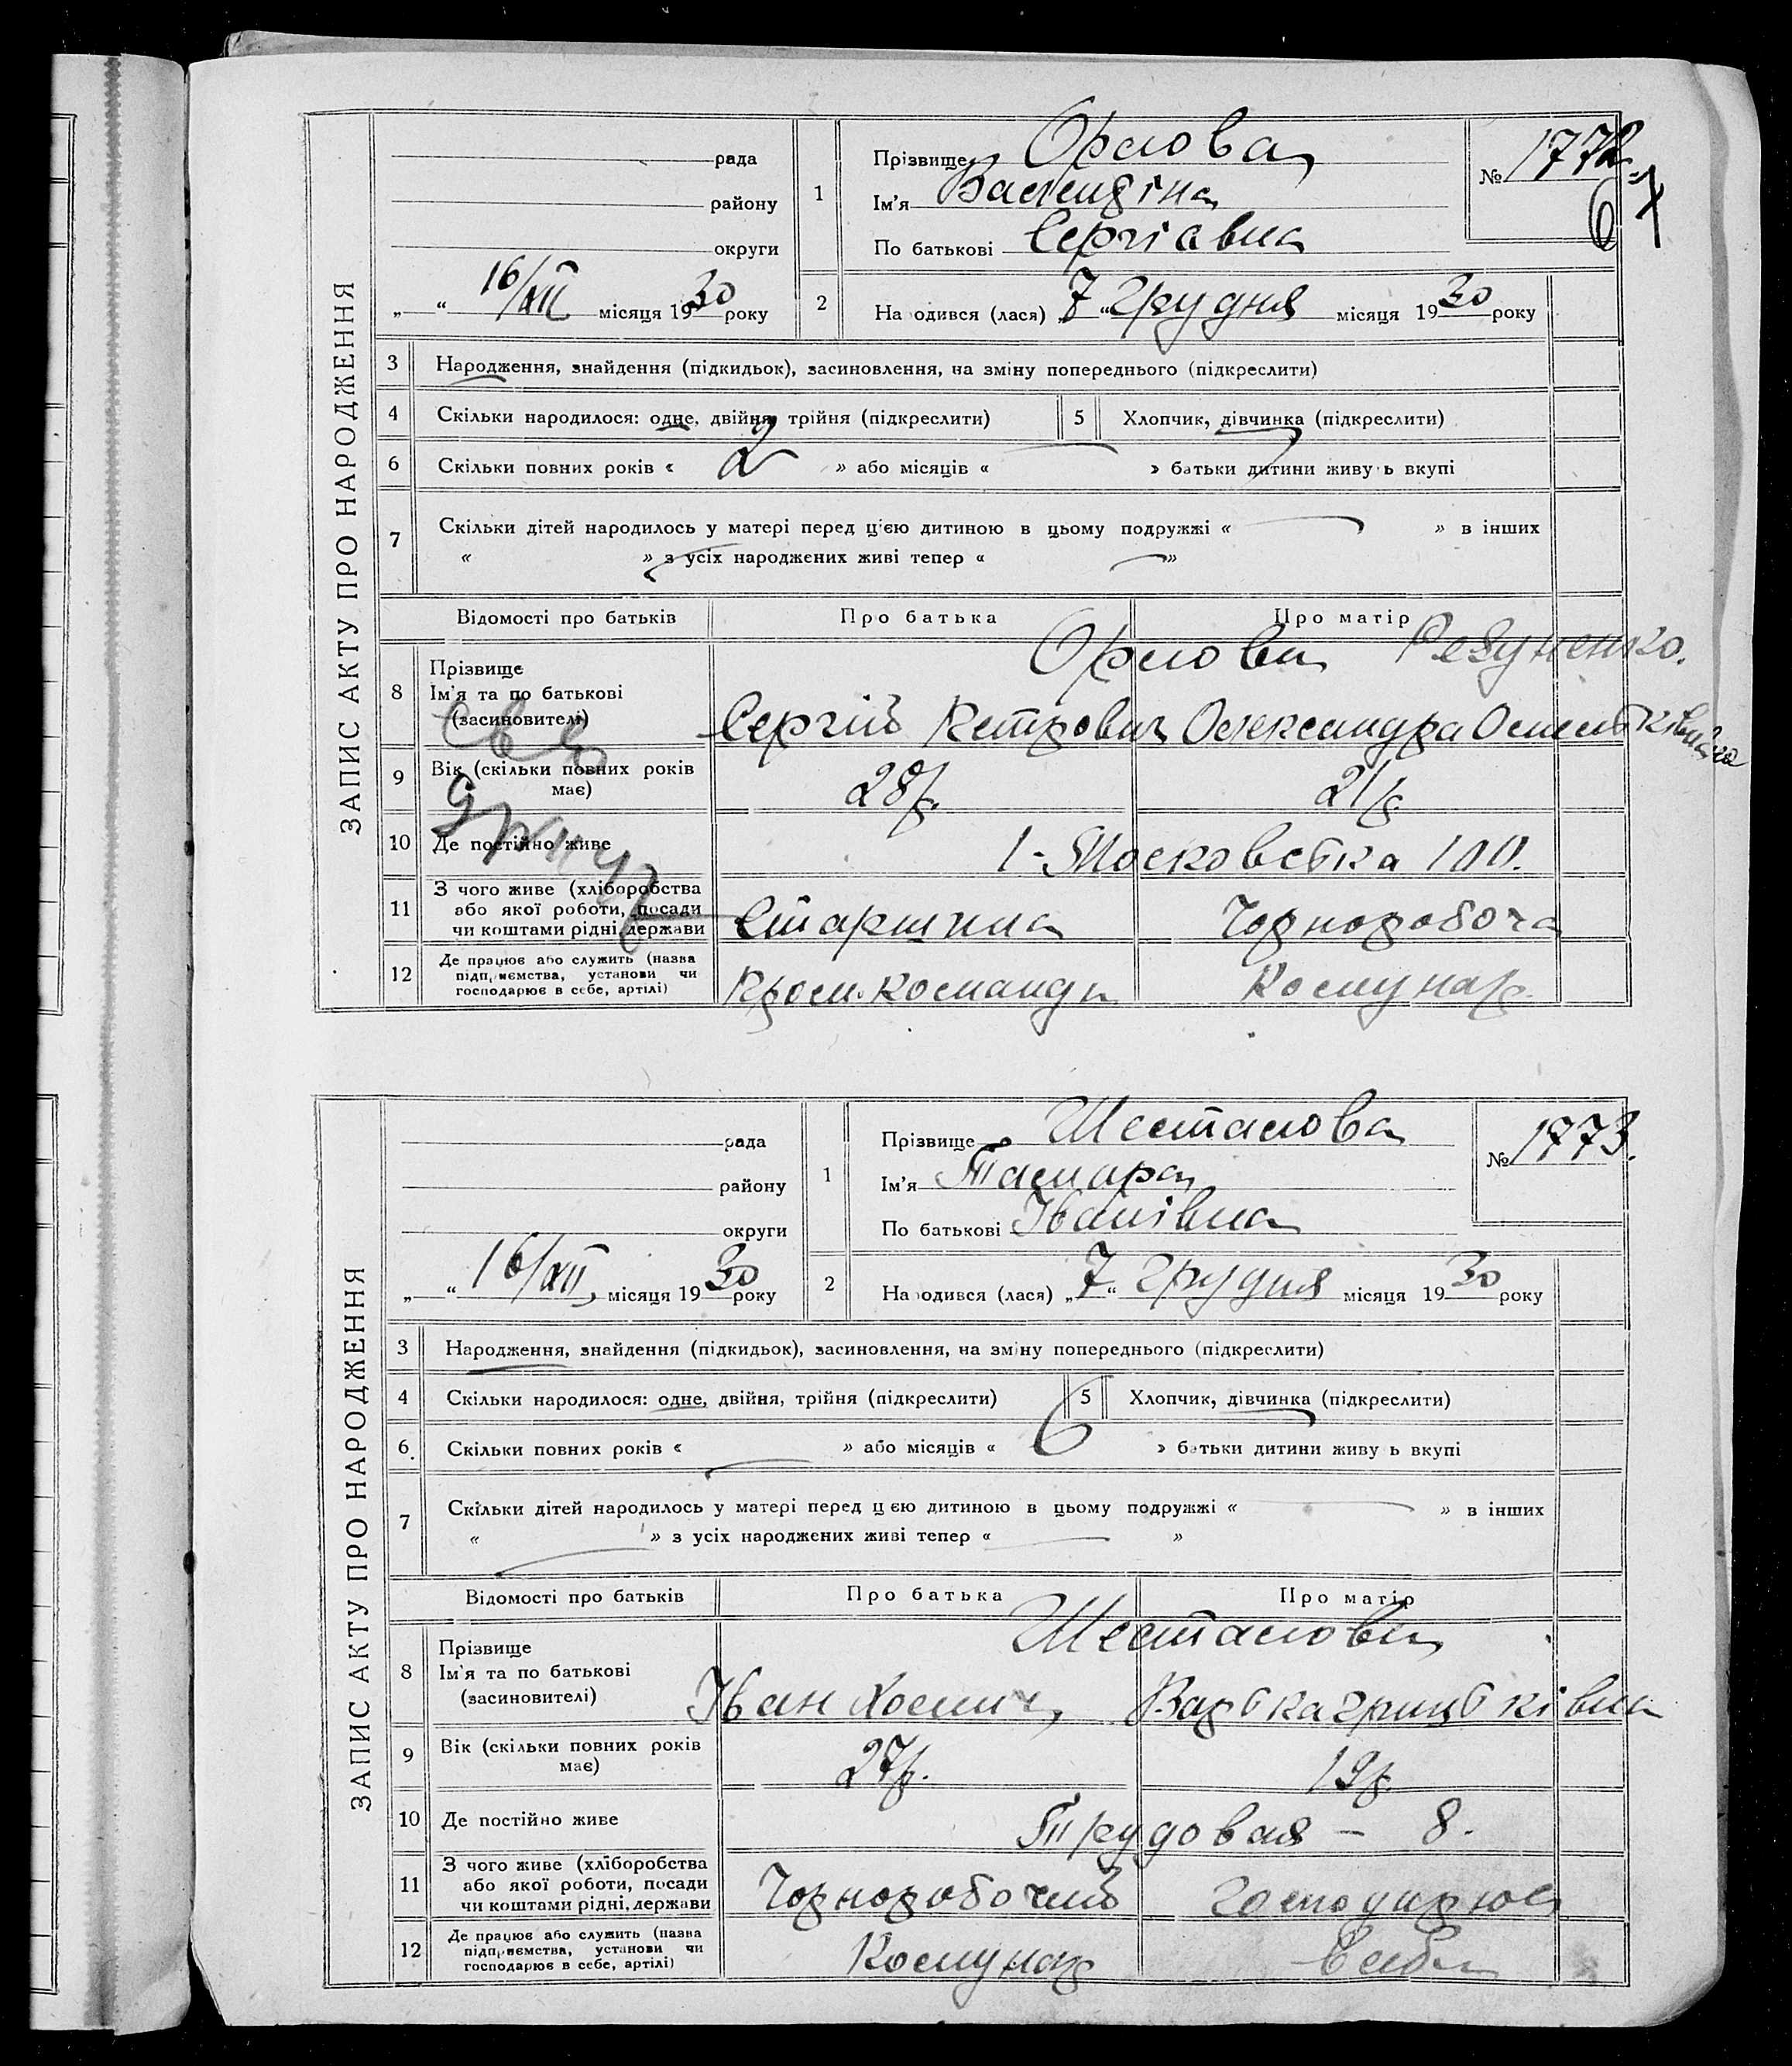 ЗАПИС АКТУ ПРО НАРОДЖЕННЯ
рада
району
округи
„ “ 16/XII місяця 1930 року
1
Прізвище Орлова
Ім'я Валентіна
По батькові Сергіавна
№ 1772
67
2
На одився (лася) „7“ Грудня місяця 1930 року
3 Народження, знайдення (підкидьок), засиновлення, на зміну попереднього (підкреслити)
4 Скільки народилося: одне, двійня, трійня (підкреслити) 5 Хлопчик, дівчинка (підкреслити)
6 Скільки повних років « 2 » або місяців « — » батьки дитини живу ь вкупі
7 Скільки дітей народилось у матері перед цією дитиною в цьому подружжі « — » в інших
« — » з усіх народжених живі тепер « — »
Відомості про батьків Про батька Про матір
8 Прізвище
Ім'я та по батькові
(засиновителі)
Орлови
Сергій Петрович Олександра
9 Вік (скільки повних років має) 28р. 21р.
10 Де постійно живе 1-Московська 100.
11 З чого живе (хліборобства або якої роботи, посади чи коштами рідні, держави Старшина Чорноробоча
12 Де працює або служить (назва підприємства, установи чи господарює в себе, артілі) Команди Комунар.
ЗАПИС АКТУ ПРО НАРОДЖЕННЯ
рада
району
округи
„ “ 16/XII місяця 1930 року
1
Прізвище Шесталова
Ім'я Тамара
По батькові Іванівна
№ 1773.
2
На одився (лася) „7“ Грудня місяця 1930 року
3 Народження, знайдення (підкидьок), засиновлення, на зміну попереднього (підкреслити)
4 Скільки народилося: одне, двійня, трійня (підкреслити) 5 Хлопчик, дівчинка (підкреслити)
6. Скільки повних років « — » або місяців « 6 » батьки дитини живу ь вкупі
7 Скільки дітей народилось у матері перед цією дитиною в цьому подружжі « — » в інших
« — » з усіх народжених живі тепер « — »
Відомості про батьків Про батька Про матір
8 Прізвище
Ім'я та по батькові
(засиновителі)
Шесталови
Іван Хомич Варька Грицьківна
9 Вік (скільки повних років має) 27р. 19р.
10 Де постійно живе Трудовая — 8.
11 З чого живе (хліборобства або якої роботи, посади чи коштами рідні, держави Чорноробочий господарює
12 Де працює або служить (назва підприємства, установи чи господарює в себе, артілі) Комунар в себе